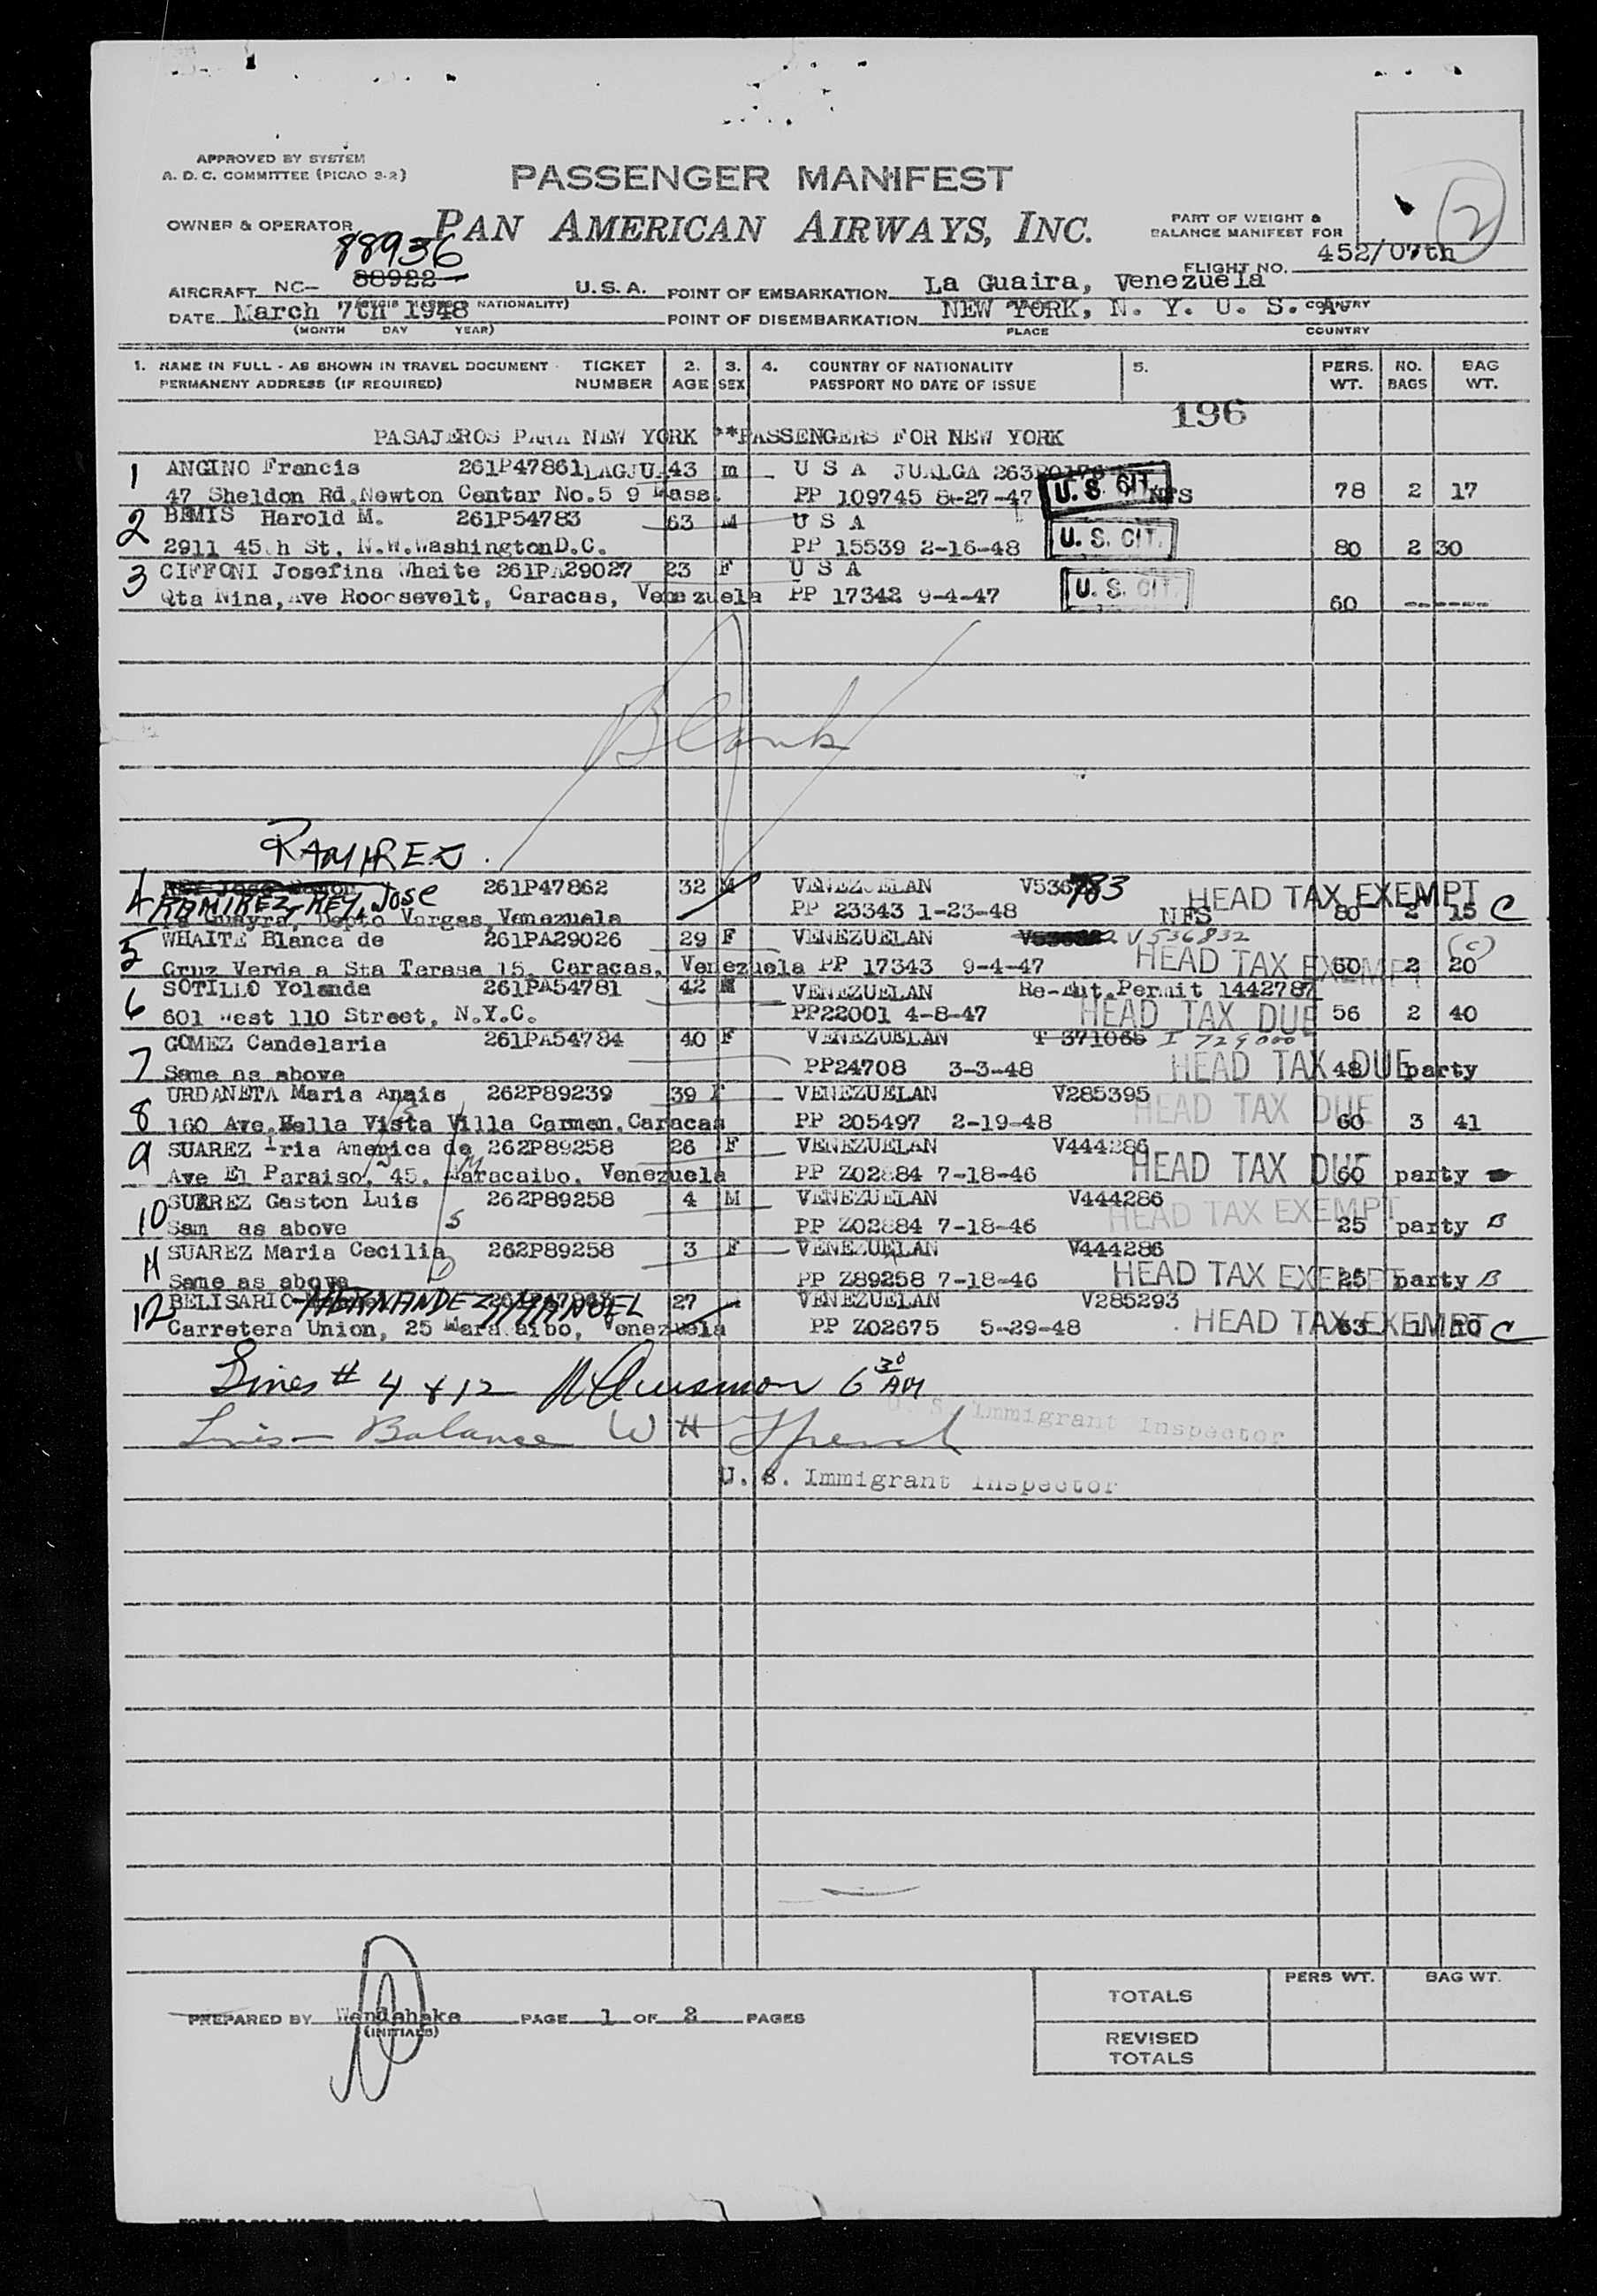 APPROVED BY SYSTEM
A. D. C. COMMITTEE (PICAO 3-2)
PASSENGER MANIFEST
OWNER & OPERATOR PAN AMERICAN AIRWAYS, INC.
PART OF WEIGHT &
BALANCE MANIFEST FOR
2
88936
FLIGHT NO. 452/07th
AIRCRAFT NC- 88922 U.S.A. POINT OF EMBARKATION La Guaira, Venezuela
NATIONALITY) COUNTRY
DATE March 7th 1948 POINT OF DISEMBARKATION NEW YORK, N. Y. U. S. A.
(MONTH DAY YEAR) PLACE COUNTRY
1. NAME IN FULL - AS SHOWN IN TRAVEL DOCUMENT TICKET 2. 3. 4. COUNTRY OF NATIONALITY 5. PERS. NO. BAG
PERMANENT ADDRESS (IF REQUIRED) NUMBER AGE SEX PASSPORT NO DATE OF ISSUE WT. BAGS WT.
196
PASAJEROS PARA NEW YORK **PASSENGERS FOR NEW YORK
1 ANGINO Francis 261P47861 LAGJUA 43 m U S A JUALGA
47 Sheldon Rd. Newton Centar No.5 9 Mass. PP 109745 8-27-47 U. S. CIT. NFS 78 2 17
2 BEMIS Harold M. 261P54783 63 M U S A
2911 45th St. N.W. Washington D.C. PP 15539 2-16-48 U. S. CIT. 80 2 30
3 CIFFONI Josefina Whaite 261PA29027 23 F U S A
Qta Nina, Ave Roosevelt, Caracas, Venezuela PP 17342 9-4-47 U. S. CIT. 60 ------
Blank
RAMIREZ.
4 261P47862 32 M VENEZUELAN V536783 HEAD TAX EXEMPT
RAMIREZ-REY, Jose
La Guayra, Depto Vargas, Venezuela PP 23343 1-23-48 NFS 80 2 15 C
5 WHAITE Blanca de 261PA29026 29 F VENEZUELAN V536832 (C)
Cruz Verde a Sta Teresa 15. Caracas, Venezuela PP 17343 9-4-47 HEAD TAX EXEMPT 60 2 20
6 SOTILLO Yolanda 261PA54781 42 VENEZUELAN Re-Ent. Permit 1442787
601 West 110 Street, N.Y.C. PP22001 4-8-47 HEAD TAX DUE 56 2 40
7 GOMEZ Candelaria 261PA54784 40 F VENEZUELAN T 371065
Same as above PP24708 3-3-48 HEAD TAX DUE 48 party
8 URDANETA Maria Anais 262P89239 39 F VENEZUELAN V285395
160 Ave. Bella Vista Villa Carmen. Caracas PP 205497 2-19-48 HEAD TAX DUE 60 3 41
9 SUAREZ Iria America de 262P89258 26 F VENEZUELAN V444286
Ave El Paraiso, 45. Maracaibo. Venezuela PP Z02884 7-18-46 HEAD TAX DUE 60 party
10 SUAREZ Gaston Luis 262P89258 4 M VENEZUELAN V444286
Sam as above PP Z02884 7-18-46 HEAD TAX EXEMPT 25 party B
11 SUAREZ Maria Cecilia 262P89258 3 F VENEZUELAN V444286
Same as above PP Z89258 7-18-46 HEAD TAX EXEMPT 25 party B
12 BELISARIO-HERNANDEZ, MANUEL 27 VENEZUELAN V285293
Carretera Union, 25 Maracaibo, Venezuela PP Z02675 5-29-48 HEAD TAX EXEMPT 63 1 10 C
Lines # 4 & 12 6 30 AM
U. S. Immigrant Inspector
Lines - Balance W H French
U. S. Immigrant Inspector
PERS WT. BAG WT.
TOTALS
PREPARED BY Wendehake PAGE 1 OF 2 PAGES
(INITIALS)
REVISED
TOTALS